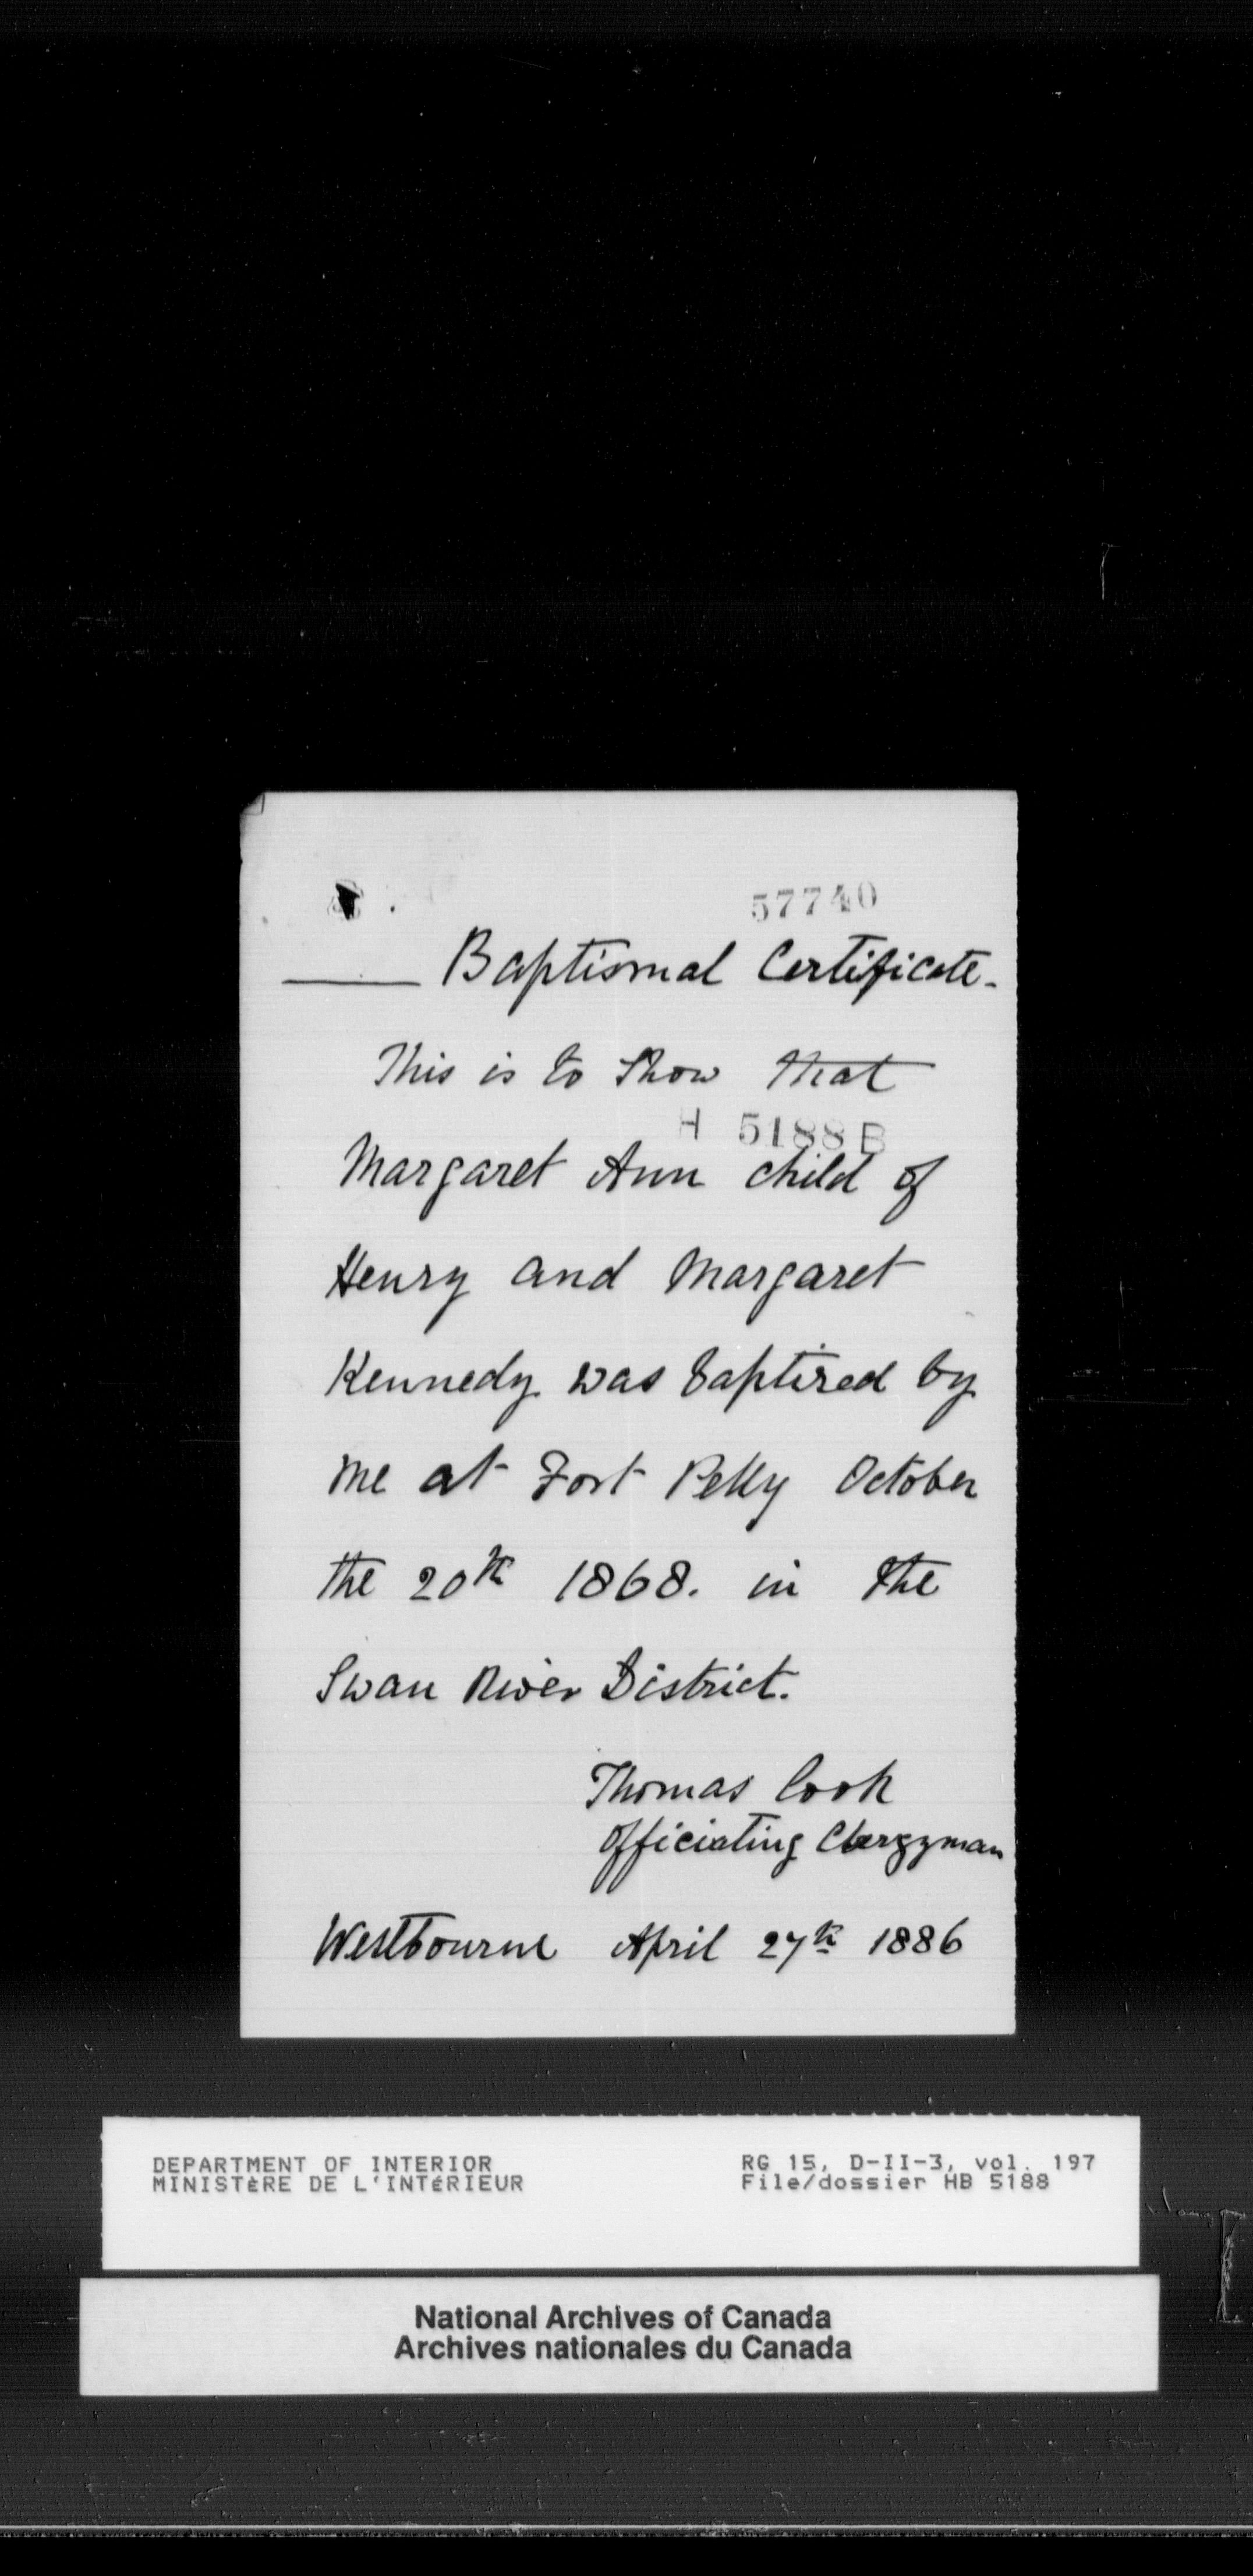 57740
Baptismal Certificate.
This is to Show that
H 5188 B
Margaret Ann child of
Henry and Margaret
Kennedy was baptized by
me at Fort Pelly October
the 20th 1868. in the
Swan River District.
Thomas Cook
Officiating Clergyman
Westbourne April 27th 1886
DEPARTMENT OF INTERIOR
MINISTÈRE DE L'INTÉRIEUR
RG 15, D-II-3, vol. 197
File/dossier HB 5188
National Archives of Canada
Archives nationales du Canada